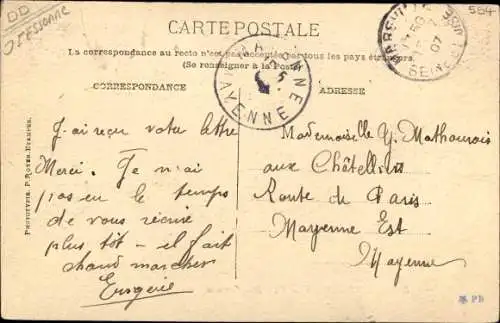 DD
ESSONNE
584
CARTE POSTALE
La correspondance au recto n'est pas acceptée par tous les pays étrangers.
(Se renseigner à la Poste)
CORRESPONDANCE
ADRESSE
MAYENNE
MAYENNE
07
SEINE
J'ai reçu votre lettre
Merci. Je n'ai
pas eu le temps
de vous écrire
plus tôt - il fait
chaud marcher
Mademoiselle Y. Mathourois
aux Châtelliers
Route de Paris
Mayenne Est
Mayenne
PHOTOTYPIE P. ROYER ETAMPES.
PB